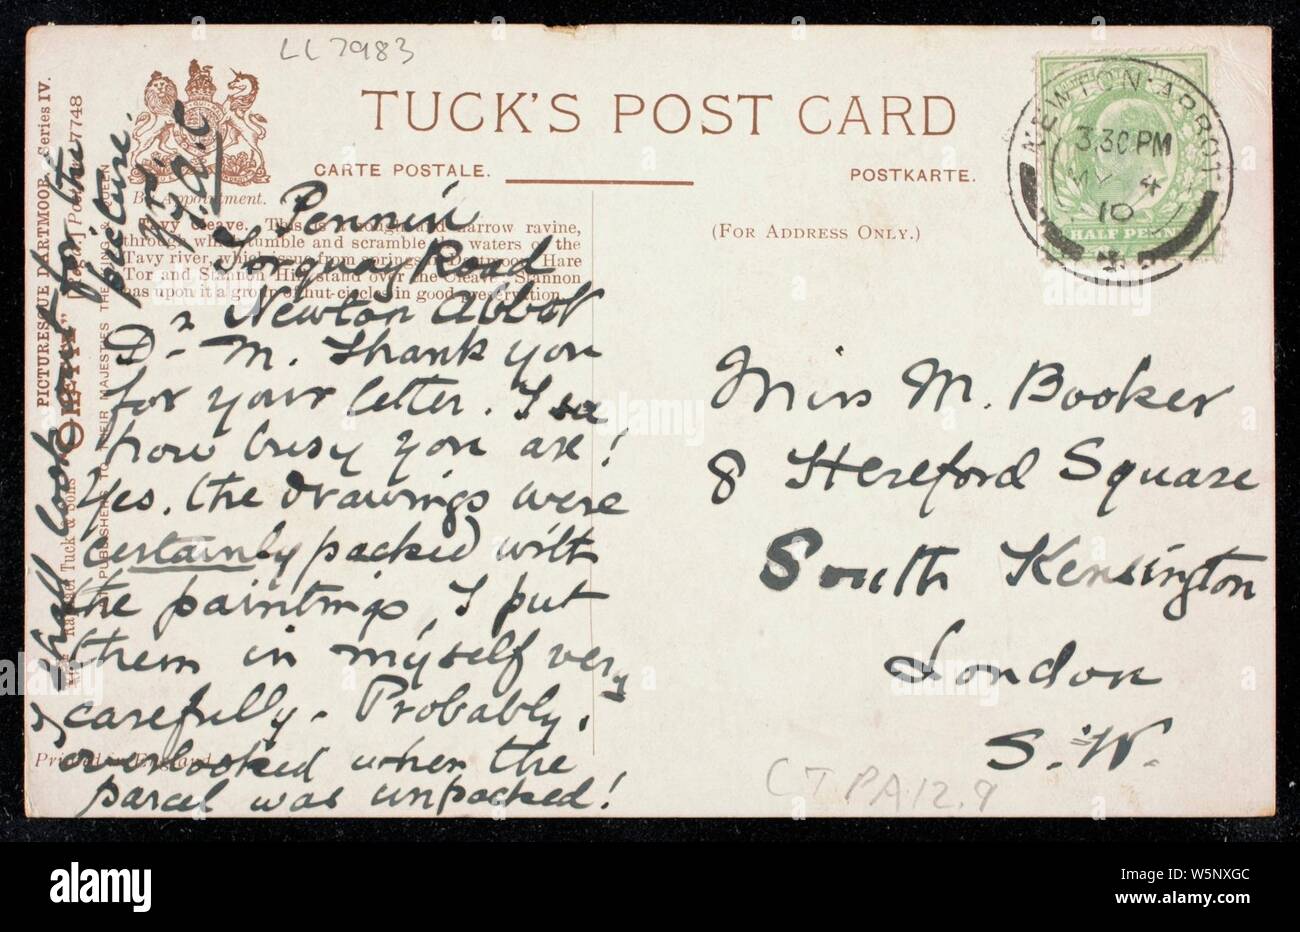 LL 7983
TUCK'S POST CARD
CARTE POSTALE.
POSTKARTE.
By Appointment.
(FOR ADDRESS ONLY.)
NEWTON ABBOT
3.30 PM
MY 4
10
HALF PENNY
Tavy Cleave. This is a narrow ravine,
through which tumble and scramble the waters of the
Tavy river, which issue from springs Dartmoor. Hare
Tor and Stannon Hill stand over the Cleave. Stannon
has upon it a group of hut-circles in good preservation.
Pennin
Torquay Road
Newton Abbot
D- M. Thank you
for your letter. I see
how busy you are!
Yes, the drawings were
certainly packed with
the paintings I put
them in myself very
carefully. Probably,
overlooked when the
parcel was unpacked!
& shall look out for the
picture.
PICTURESQUE DARTMOOR. Series IV.
"OILETTE" 7748
Raphael Tuck & Sons
PUBLISHERS TO THEIR MAJESTIES THE KING & QUEEN
Printed in England.
Miss M. Booker
8 Hereford Square
South Kensington
London
S.W.
CTPA12.9
alamy
alamy
Image ID: W5NXGC
www.alamy.com